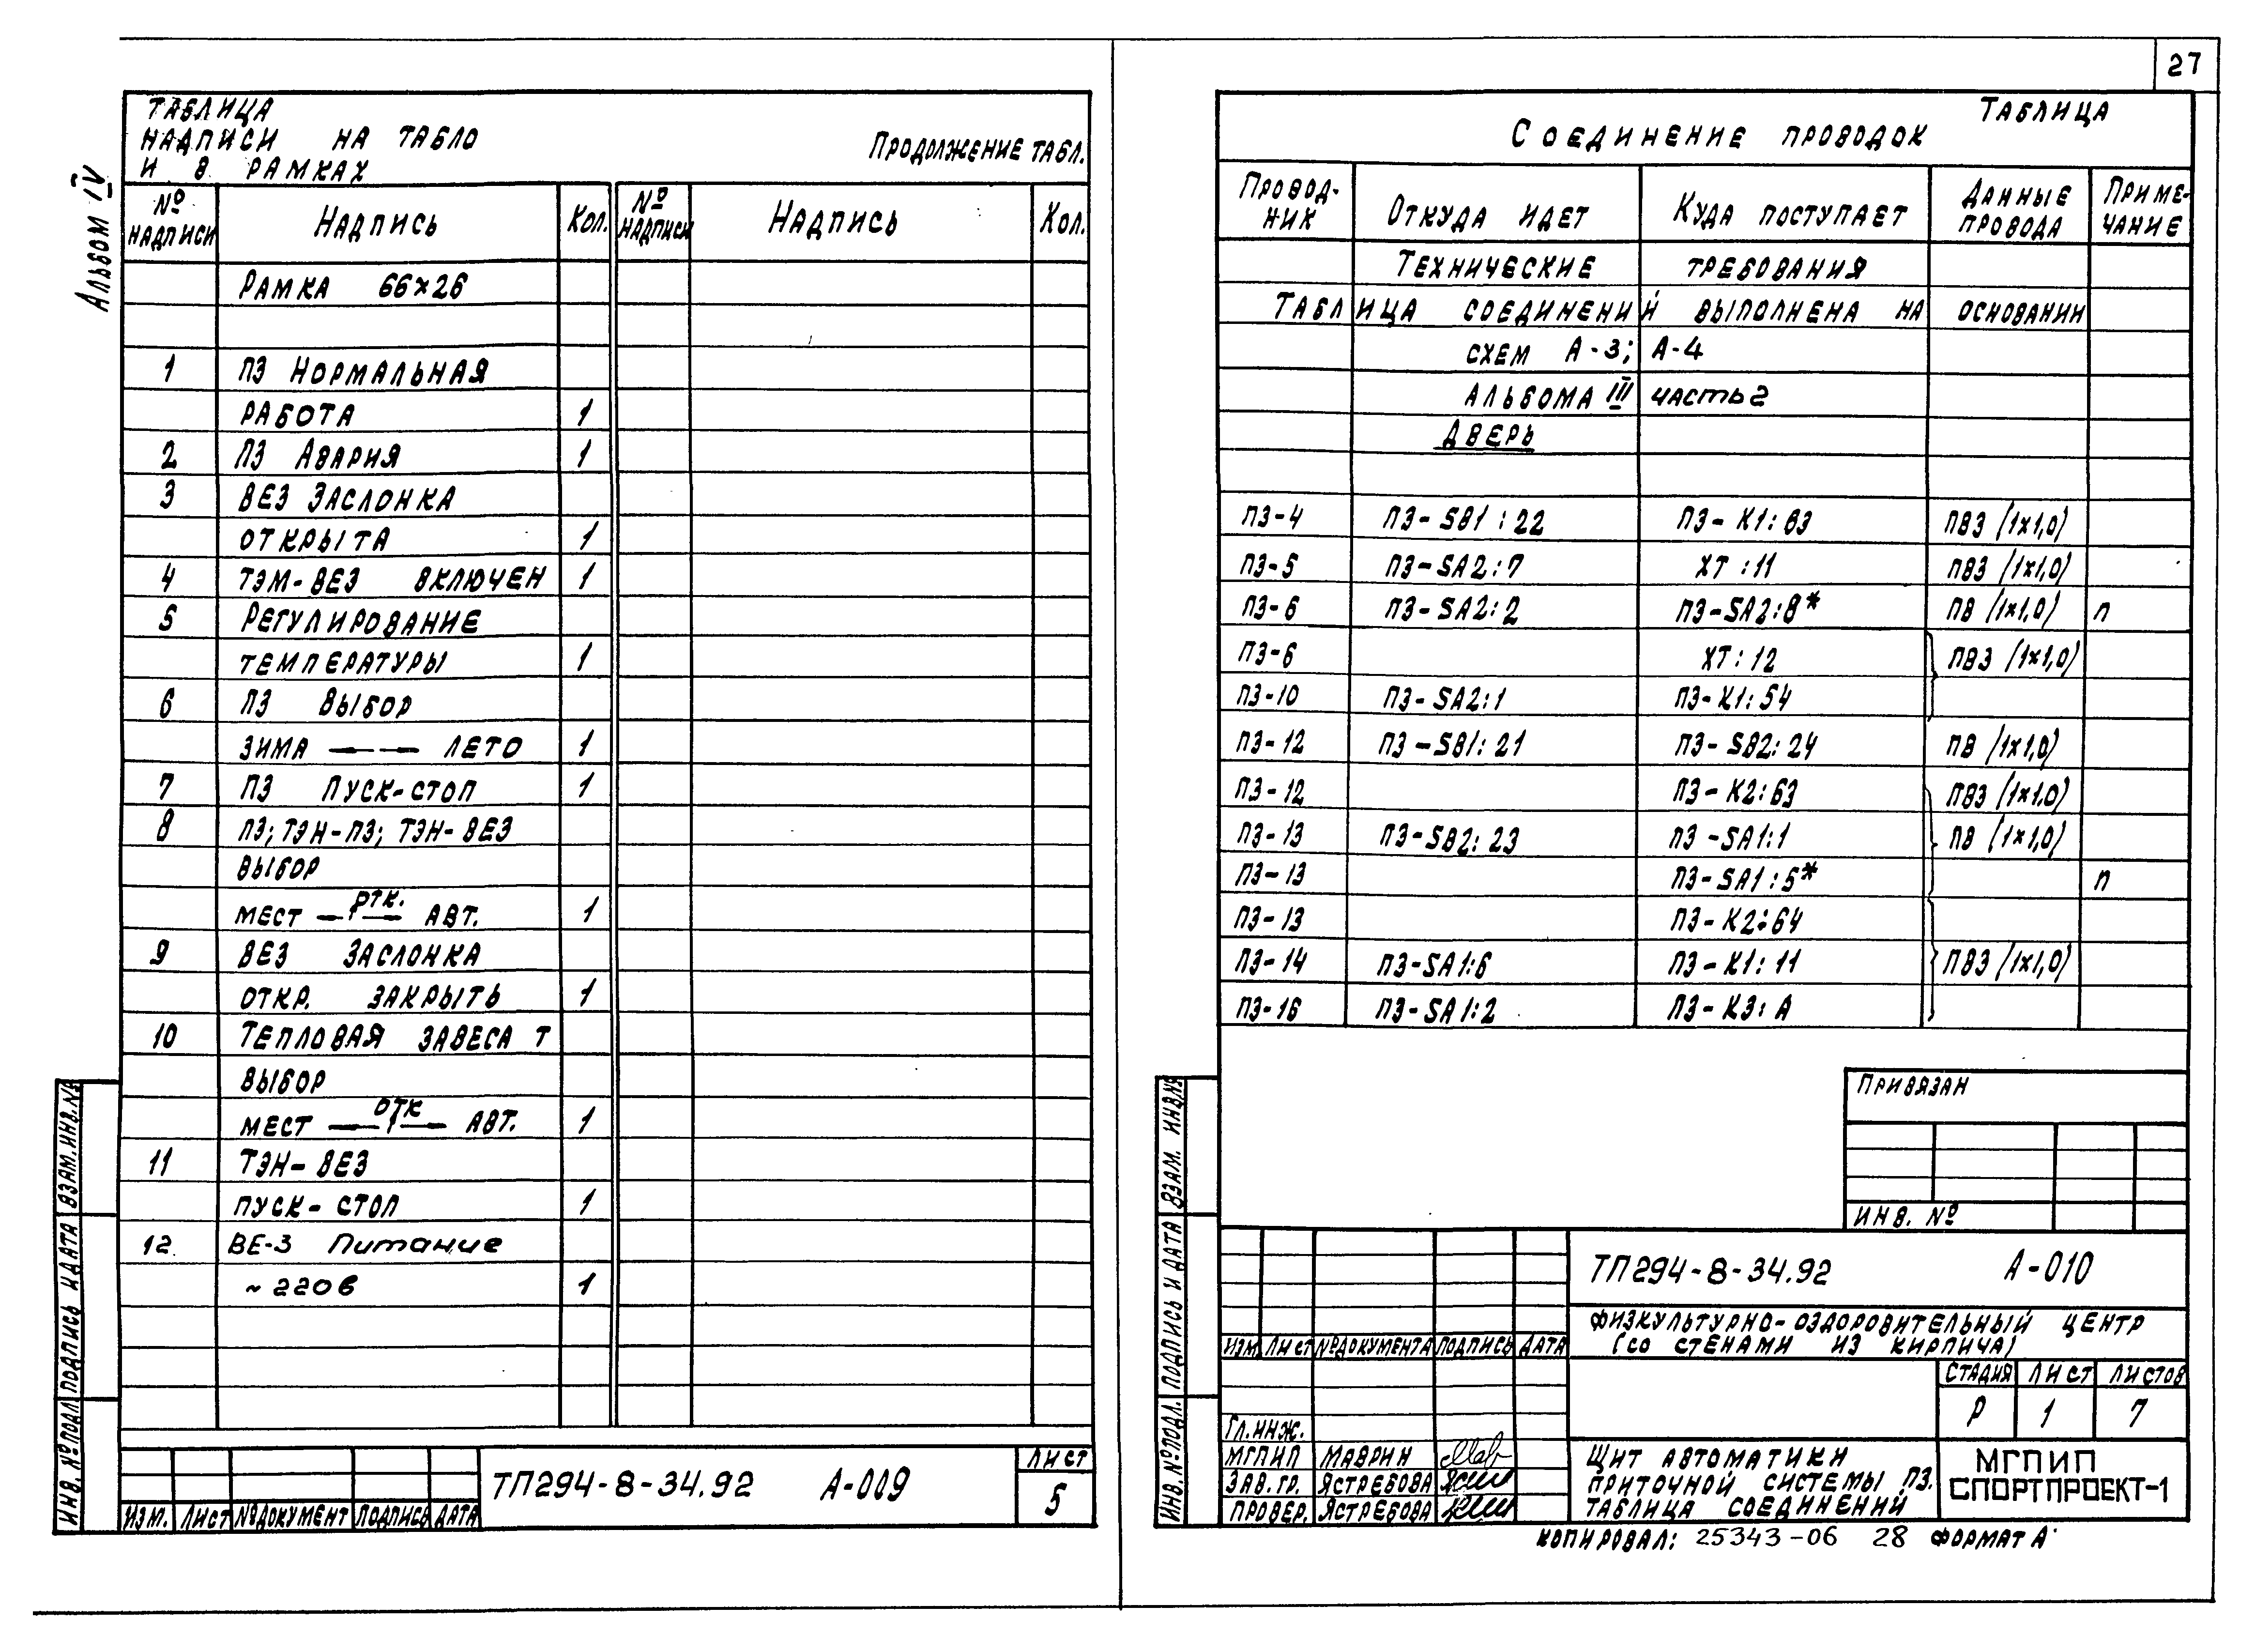 27
Альбом IV
ТАБЛИЦА
НАДПИСИ НА ТАБЛО
И В РАМКАХ
ПРОДОЛЖЕНИЕ ТАБЛ.
№ НАДПИСИ НАДПИСЬ КОЛ. № НАДПИСИ НАДПИСЬ КОЛ.
РАМКА 66×26
1 ПЗ НОРМАЛЬНАЯ
РАБОТА 1
2 ПЗ АВАРИЯ 1
3 ВЕЗ ЗАСЛОНКА
ОТКРЫТА 1
4 ТЭМ-ВЕЗ ВКЛЮЧЕН 1
5 РЕГУЛИРОВАНИЕ
ТЕМПЕРАТУРЫ 1
6 ПЗ ВЫБОР
ЗИМА ←→ ЛЕТО 1
7 ПЗ ПУСК-СТОП 1
8 ПЗ; ТЭН-ПЗ; ТЭН-ВЕЗ
ВЫБОР
ОТК.
МЕСТ АВТ. 1
9 ВЕЗ ЗАСЛОНКА
ОТКР. ЗАКРЫТЬ 1
10 ТЕПЛОВАЯ ЗАВЕСА Т
ВЫБОР
ОТК
МЕСТ АВТ. 1
11 ТЭН-ВЕЗ
ПУСК-СТОП 1
12 ВЕ-3 Питание
~ 220в 1
ВЗАМ. ИНВ. №
ПОДПИСЬ И ДАТА
ИНВ. № ПОДЛ
ИЗМ. ЛИСТ № ДОКУМЕНТ ПОДПИСЬ ДАТА
ТП294-8-34.92 А-009
ЛИСТ
5
ТАБЛИЦА
СОЕДИНЕНИЕ ПРОВОДОК
ПРОВОД-НИК ОТКУДА ИДЕТ КУДА ПОСТУПАЕТ ДАННЫЕ ПРОВОДА ПРИМЕ-ЧАНИЕ
ТЕХНИЧЕСКИЕ ТРЕБОВАНИЯ
ТАБЛИЦА СОЕДИНЕНИЙ ВЫПОЛНЕНА НА ОСНОВАНИИ
СХЕМ А-3; А-4
АЛЬБОМА III ЧАСТЬ 2
ДВЕРЬ
ПЗ-4 ПЗ-SB1:22 ПЗ-К1:63 ПВЗ (1×1,0)
ПЗ-5 ПЗ-SA2:7 ХТ:11 ПВЗ (1×1,0)
ПЗ-6 ПЗ-SA2:2 ПЗ-SA2:8* ПВ (1×1,0) п
ПЗ-6 ХТ:12 ПВЗ (1×1,0)
ПЗ-10 ПЗ-SA2:1 ПЗ-К1:54
ПЗ-12 ПЗ-SB1:21 ПЗ-SB2:24 ПВ (1×1,0)
ПЗ-12 ПЗ-К2:63 ПВЗ (1×1,0)
ПЗ-13 ПЗ-SB2:23 ПЗ-SA1:1 ПВ (1×1,0)
ПЗ-13 ПЗ-SA1:5* п
ПЗ-13 ПЗ-К2:64
ПЗ-14 ПЗ-SA1:6 ПЗ-К1:11 ПВЗ (1×1,0)
ПЗ-16 ПЗ-SA1:2 ПЗ-К3:А
ПРИВЯЗАН
ИНВ. №
ВЗАМ. ИНВ №
ПОДПИСЬ И ДАТА
ИНВ. № ПОДЛ.
ТП294-8-34.92 А-010
ФИЗКУЛЬТУРНО-ОЗДОРОВИТЕЛЬНЫЙ ЦЕНТР
(СО СТЕНАМИ ИЗ КИРПИЧА)
ИЗМ. ЛИСТ № ДОКУМЕНТА ПОДПИСЬ ДАТА
СТАДИЯ ЛИСТ ЛИСТОВ
Р 1 7
ГЛ. ИНЖ.
МГПИП МАВРИН
ЗАВ. ГР. ЯСТРЕБОВА
ПРОВЕР. ЯСТРЕБОВА
ЩИТ АВТОМАТИКИ
ПРИТОЧНОЙ СИСТЕМЫ ПЗ.
ТАБЛИЦА СОЕДИНЕНИЙ
МГПИП
СПОРТПРОЕКТ-1
КОПИРОВАЛ: 25343-06 28 ФОРМАТ А